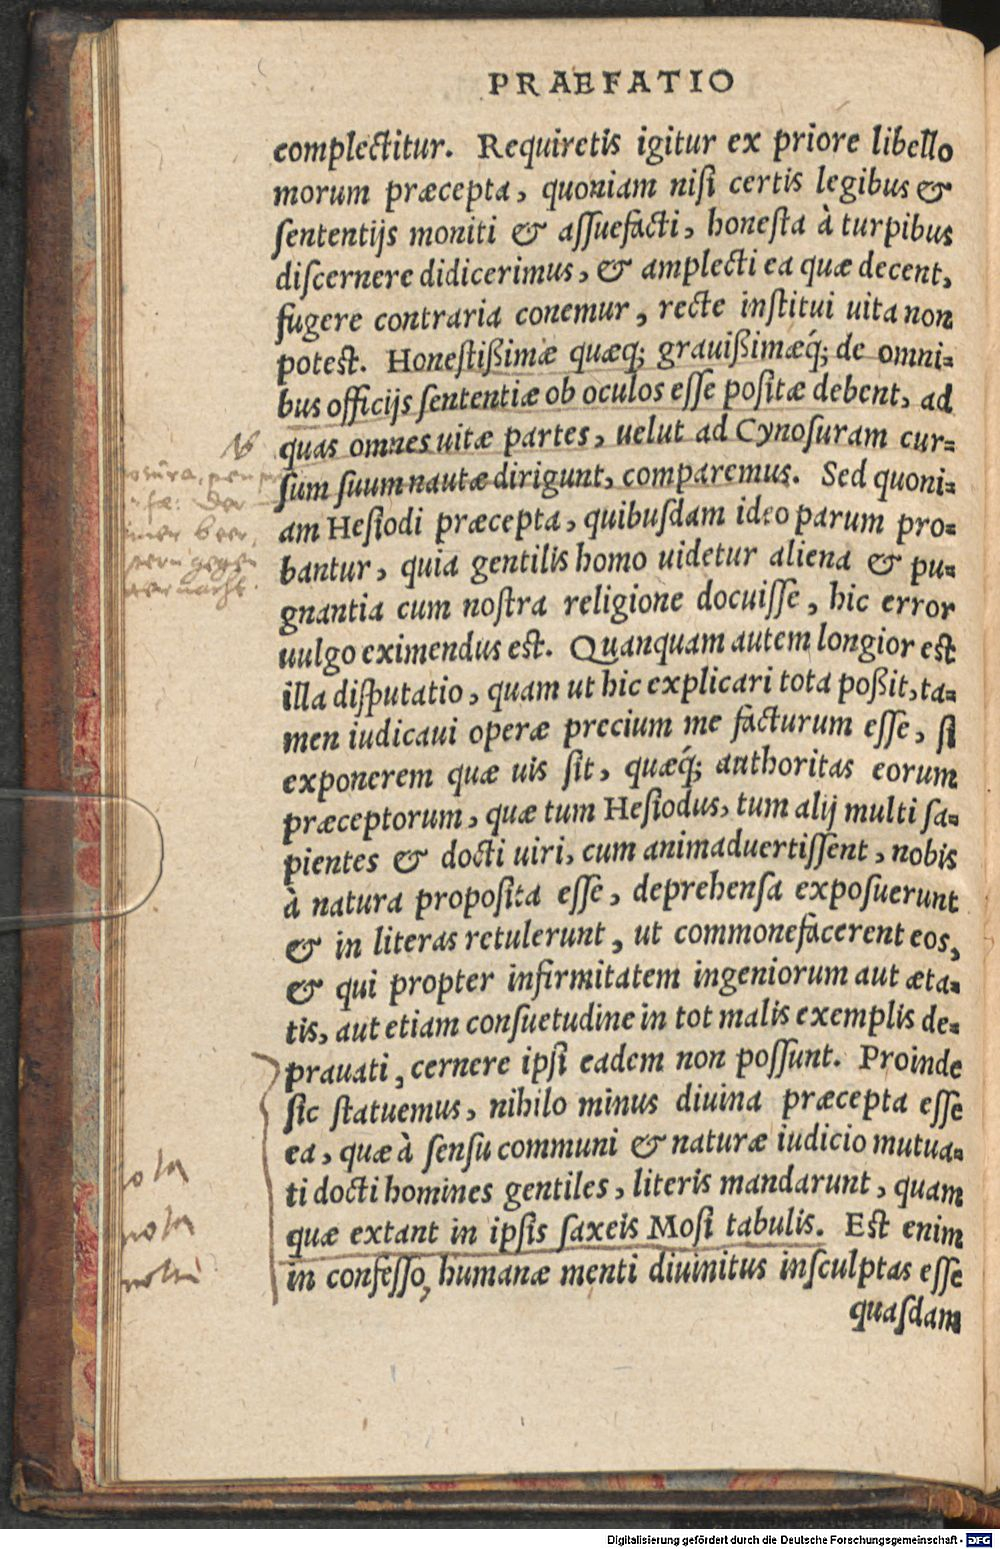 PRAEFATIO
complectitur. Requiretis igitur ex priore libello
morum præcepta, quoniam nisi certis legibus &
sententijs moniti & assuefacti, honesta à turpibus
discernere didicerimus, & amplecti ea quæ decent,
fugere contraria conemur, recte institui uita non
potest. Honestißimæ quæq́; grauißimæq́; de omni-
bus officijs sententiæ ob oculos esse positæ debent, ad
quas omnes uitæ partes, uelut ad Cynosuram cur-
sum suum nautæ dirigunt, comparemus. Sed quoni-
am Hesiodi præcepta, quibusdam ideo parum pro-
bantur, quia gentilis homo uidetur aliena & pu-
gnantia cum nostra religione docuisse, hic error
uulgo eximendus est. Quanquam autem longior est
illa disputatio, quam ut hic explicari tota poßit, ta-
men iudicaui operæ precium me facturum esse, si
exponerem quæ uis sit, quæq́; authoritas eorum
præceptorum, quæ tum Hesiodus, tum alij multi sa-
pientes & docti uiri, cum animaduertissent, nobis
à natura proposita esse, deprehensa exposuerunt
& in literas retulerunt, ut commonefacerent eos,
& qui propter infirmitatem ingeniorum aut æta-
tis, aut etiam consuetudine in tot malis exemplis de-
prauati, cernere ipsi eadem non possunt. Proinde
sic statuemus, nihilo minus diuina præcepta esse
ea, quæ à sensu communi & naturæ iudicio mutua-
ti docti homines gentiles, literis mandarunt, quam
quæ extant in ipsis saxeis Mosi tabulis. Est enim
in confesso, humanæ menti diuinitus insculptas esse
quasdam
NB
der
beer
gegen
nacht
nota
Digitalisierung gefördert durch die Deutsche Forschungsgemeinschaft - DFG